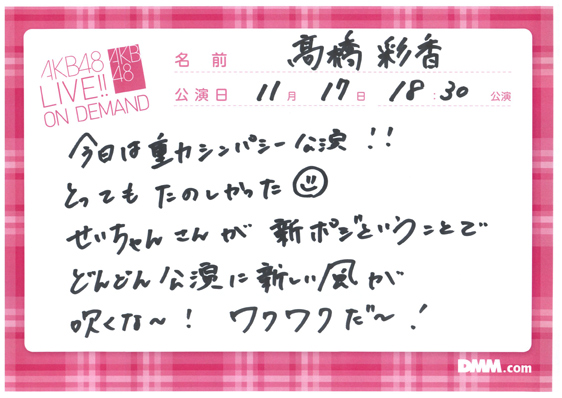 AKB48
LIVE!!
ON DEMAND
AKB
48
名前 髙橋彩香
公演日 11月17日 18:30 公演
今日は重力シンパシー公演!!
とってもたのしかった
せいちゃんさんが新ポジということで
どんどん公演に新しい風が
吹くな〜! ワクワクだ〜!
DMM.com